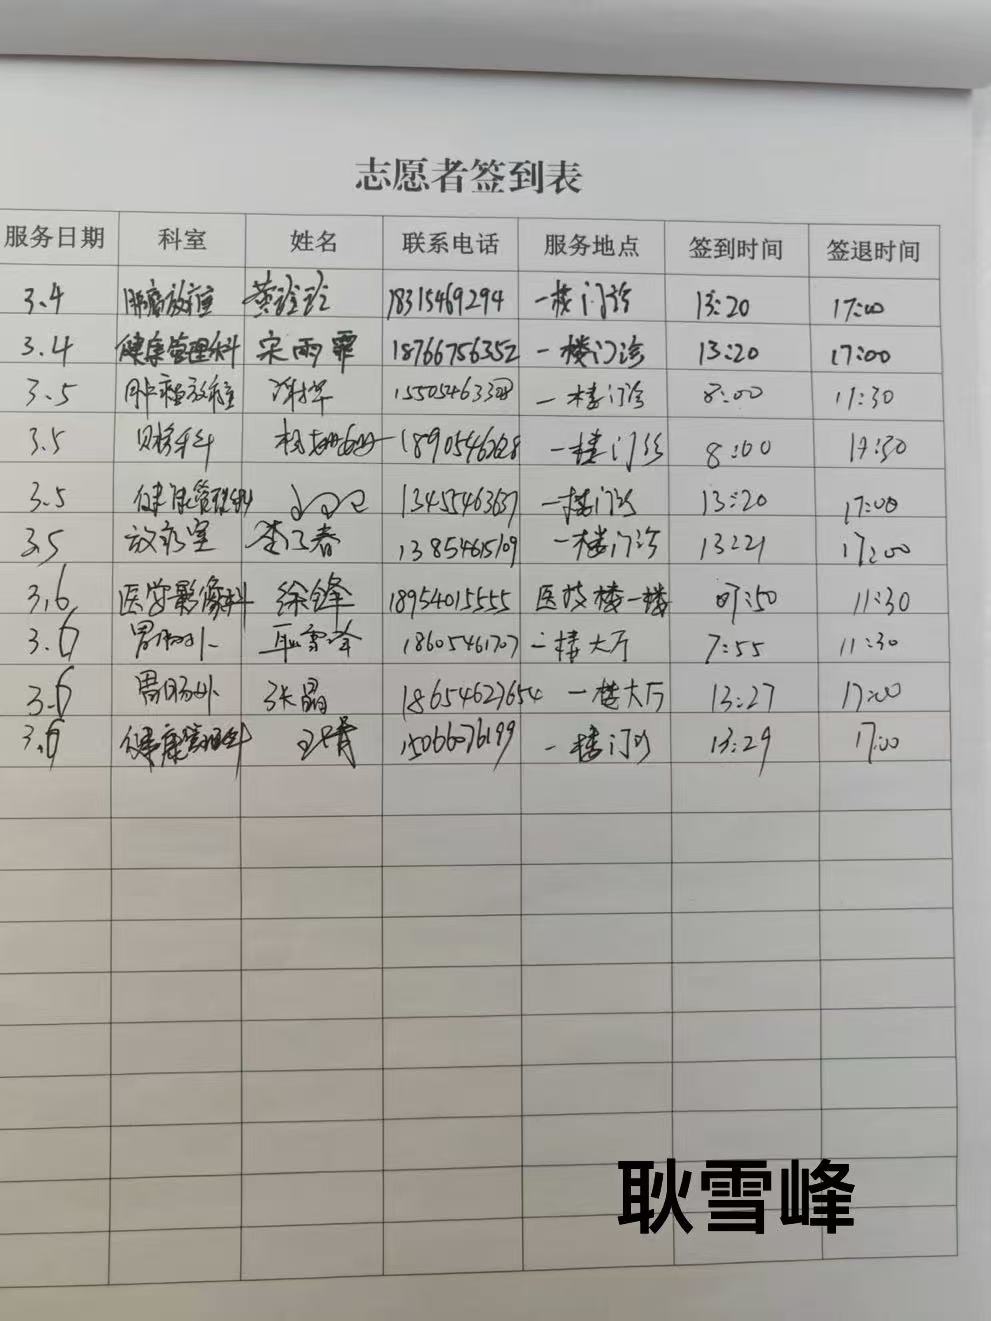 志愿者签到表
服务日期 科室 姓名 联系电话 服务地点 签到时间 签退时间
3.4 肿瘤放疗 黄玲玲 18315469294 一楼门诊 13:20 17:00
3.4 健康管理科 宋雨霏 18766756352 一楼门诊 13:20 17:00
3.5 肿瘤放疗 一楼门诊 8:00 11:30
3.5 一楼门诊 8:00 11:30
3.5 健康管理科 13455463637 一楼门诊 13:20 17:00
3.5 放疗室 春 13854615109 一楼门诊 13:21 17:00
3.6 医学影像科 徐锋 18954015555 医技楼一楼 07:50 11:30
3.6 胃肠外 耿雪峰 18605461707 一楼大厅 7:55 11:30
3.6 胃肠外 张晶 18654627654 一楼大厅 13:27 17:00
3.6 健康管理科 15066076199 一楼门诊 13:29 17:00
耿雪峰